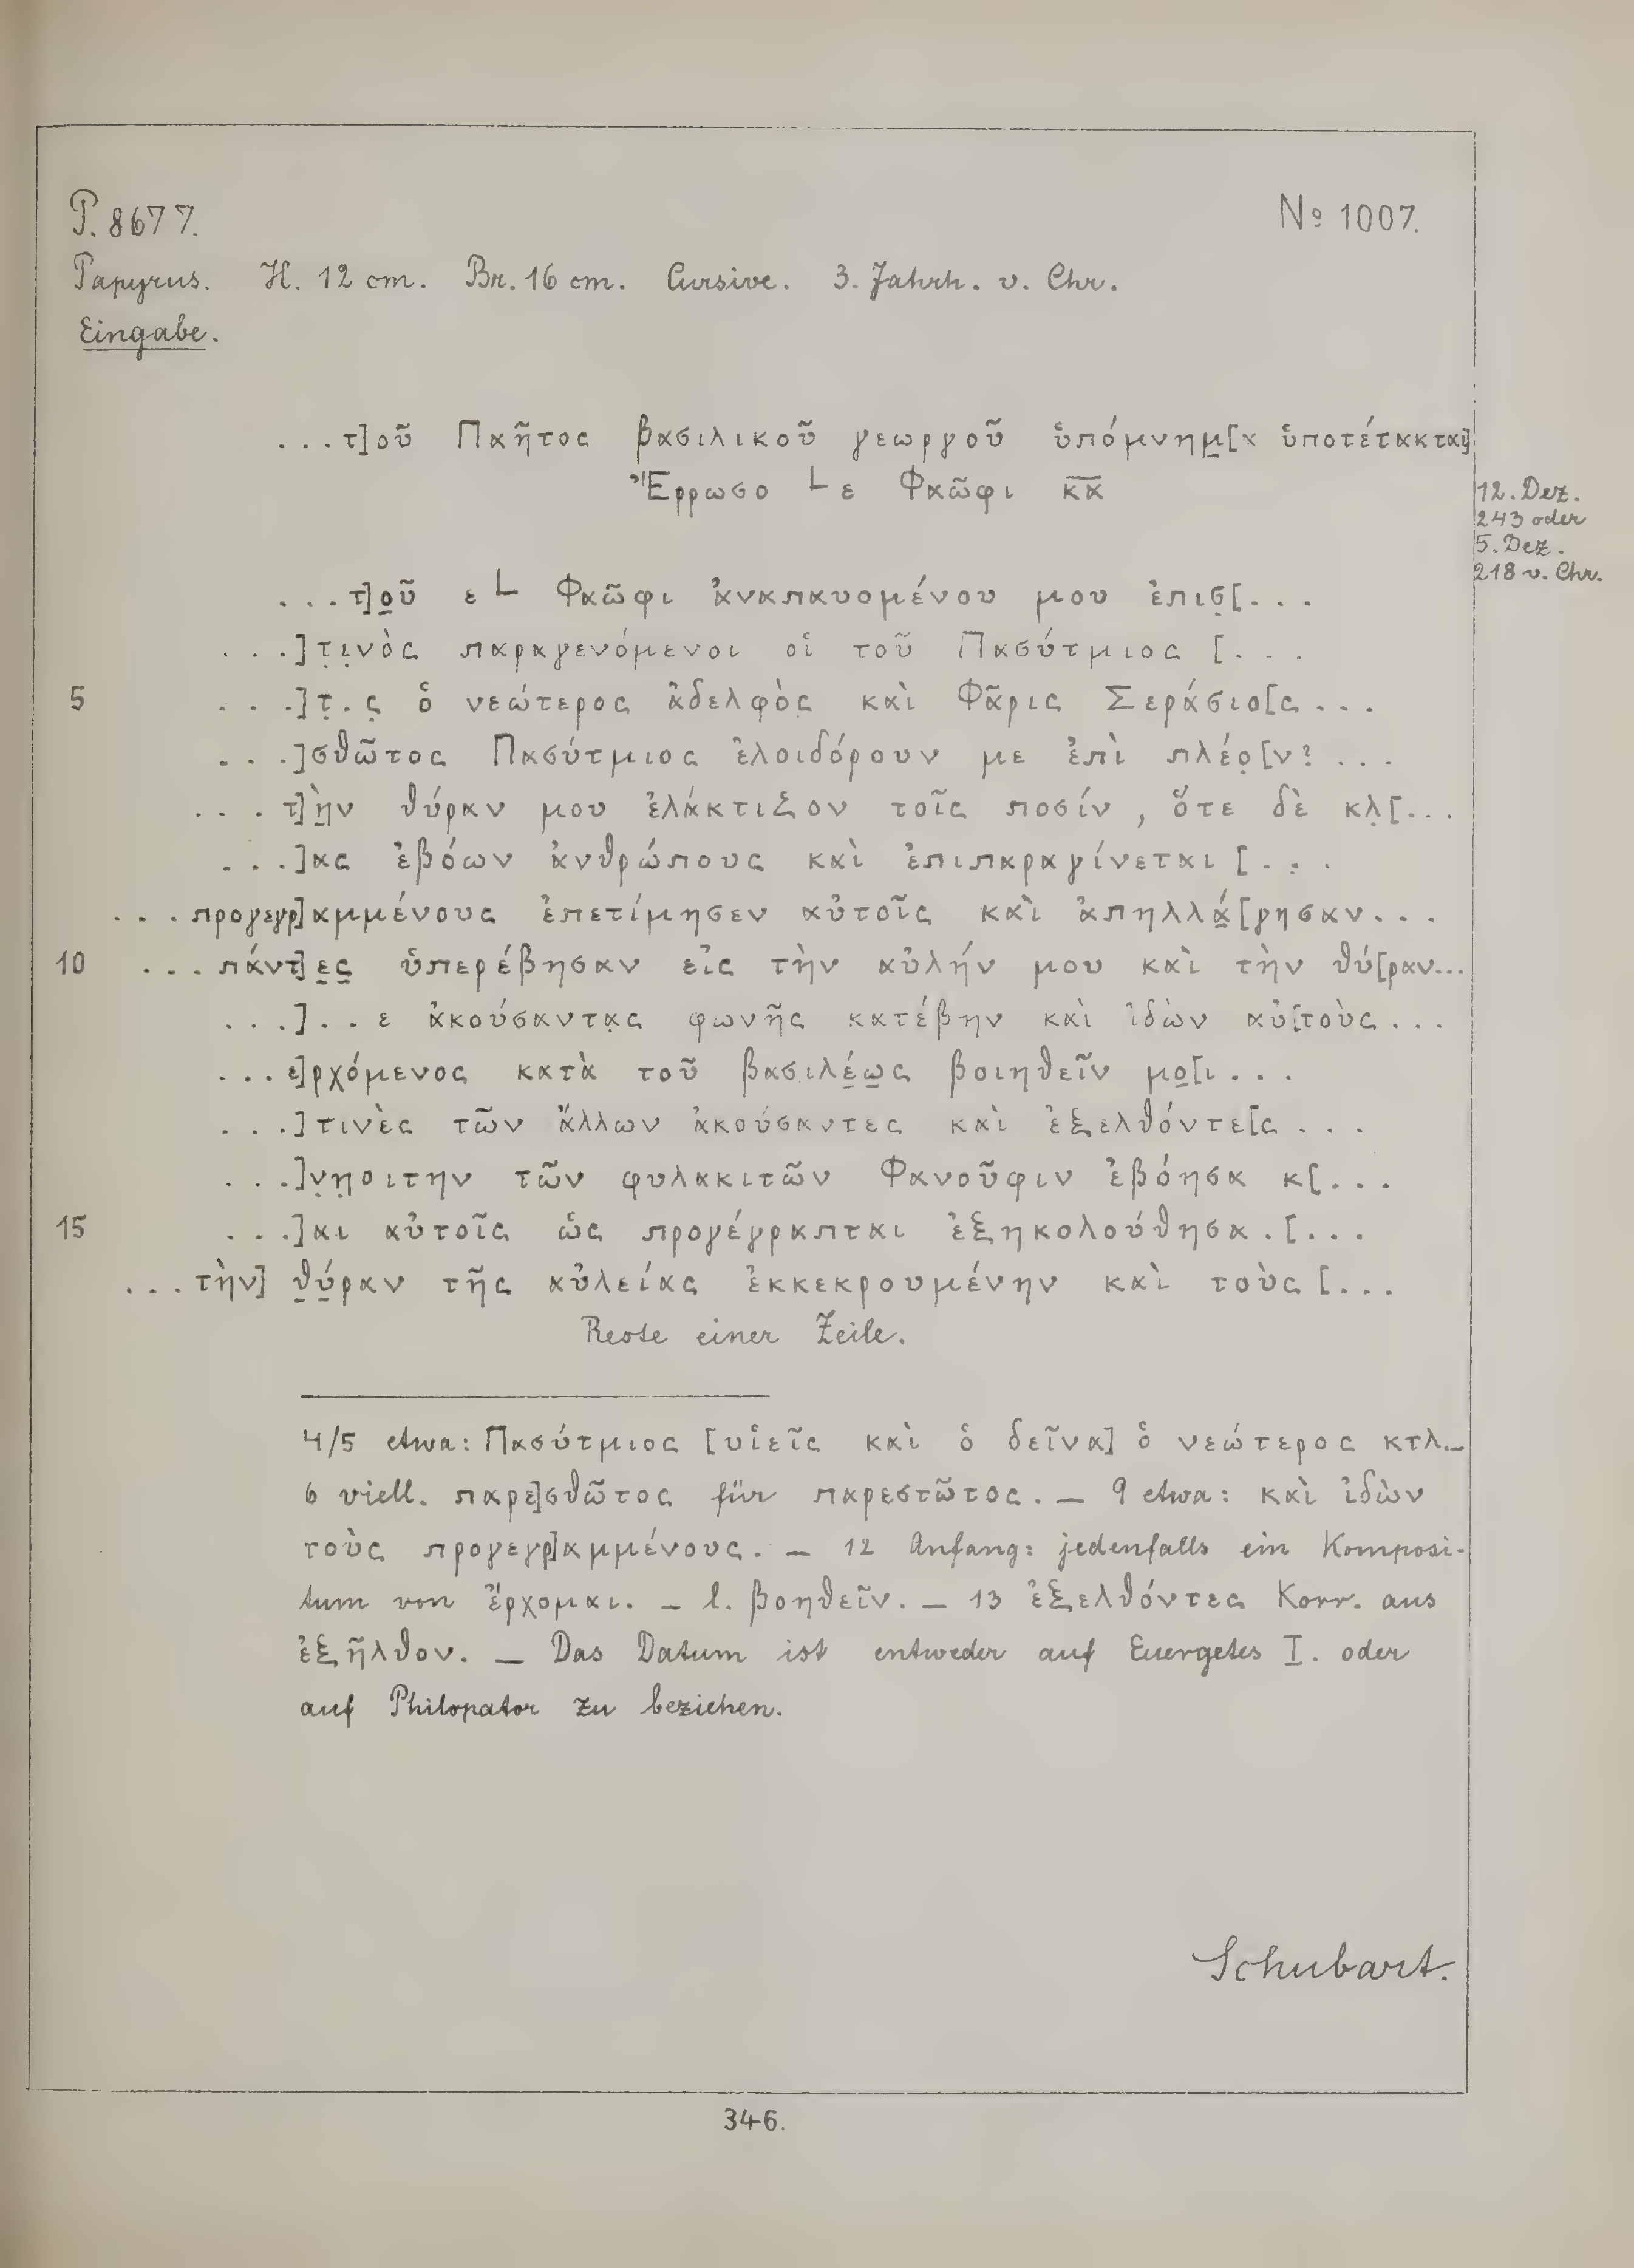 P. 8677. № 1007.
Papyrus. H. 12 cm. Br. 16 cm. Cursive. 3. Jahrh. v. Chr.
Eingabe.
...τ]οῦ Παῆτος βασιλικοῦ γεωργοῦ ὑπόμνημ̣[α ὑποτέτακται]
Ἔρρωσο └ ε Φαῶφι κ̅α̅
12. Dez.
243 oder
5. Dez.
218 v. Chr.
...τ]ο̣ῦ ε└ Φαῶφι ἀναπαυομένου μου ἐπισ̣[...
...]τ̣ι̣νὸς παραγενόμενοι οἱ τοῦ Πασύτμιος [...
5 ...]τ̣.ς̣ ὁ νεώτερος ἀδελφὸς καὶ Φᾶρις Σεράσιο[ς...
...]σθῶτος Πασύτμιος ἐλοιδόρουν με ἐπὶ πλέο̣[ν? ...
...τ]ὴ̣ν θύραν μου ἐλάκτιζον τοῖς ποσίν, ὅτε δὲ κλ̣[...
...]ας ἐβόων ἀνθρώπους καὶ ἐπιπαραγίνεται [...
...προγεγρ]αμμένους ἐπετίμησεν αὐτοῖς καὶ ἀπηλλά̣[γησαν...
10 ...πάντ]ε̣ς̣ ὑπερέβησαν εἰς τὴν αὐλήν μου καὶ τὴν θύ[ραν...
...]..ε ἀκούσαντα̣ς φωνῆς κατέβην καὶ ἰδὼν αὐ[τοὺς...
...ε]ρχόμενος κατὰ τοῦ βασιλέ̣ω̣ς βοιηθεῖν μο̣[ι...
...]τινὲς τῶν ἄλλων ἀκούσαντες καὶ ἐξελθόντε[ς...
...]ν̣η̣οιτην τῶν φυλακιτῶν Φανοῦφιν ἐβόησα κ[...
15 ...]αι αὐτοῖς ὡς προγέγραπται ἐξηκολούθησα.[...
...τὴν] θ̣ύ̣ραν τῆς αὐλείας ἐκκεκρουμένην καὶ τοὺς [...
Reste einer Zeile.
4/5 etwa: Πασύτμιος [υἱεῖς καὶ ὁ δεῖνα] ὁ νεώτερος κτλ. –
6 viell. παρε]σθῶτος für παρεστῶτος. – 9 etwa: καὶ ἰδὼν
τοὺς προγεγρ]αμμένους. – 12 Anfang: jedenfalls ein Komposi-
tum von ἔρχομαι. – l. βοηθεῖν. – 13 ἐξελθόντες Korr. aus
ἐξῆλθον. – Das Datum ist entweder auf Euergetes I. oder
auf Philopator zu beziehen.
Schubart.
346.